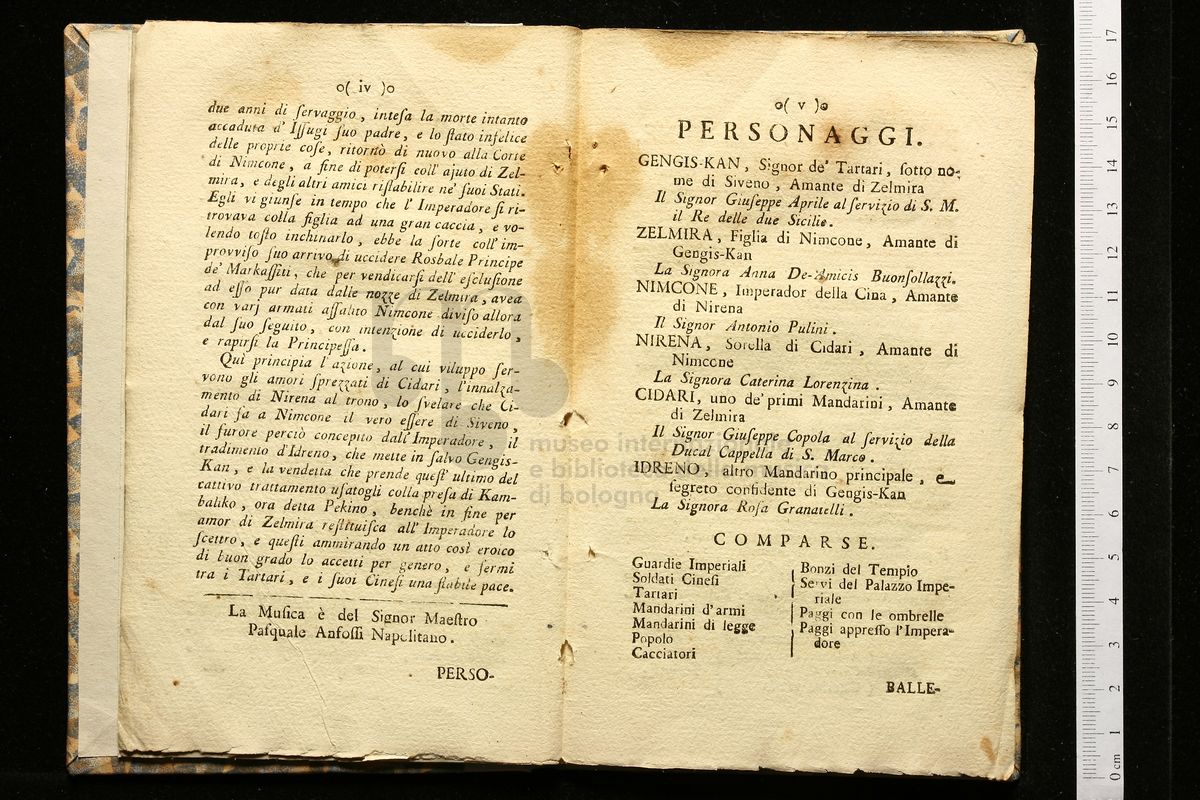 o( iv )o
due anni di ſervaggio, inteſa la morte intanto
accaduta d' Iſſugi ſuo padre, e lo ſtato infelice
delle proprie coſe, ritornò di nuovo alla Corte
di Nimcone, a fine di poterſi coll' ajuto di Zel-
mira, e degli altri amici riſtabilire ne' ſuoi Stati.
Egli vi giunſe in tempo che l' Imperadore ſi ri-
trovava colla figlia ad una gran caccia, e vo-
lendo toſto inchinarlo, ebbe la ſorte coll' im-
provviſo ſuo arrivo di uccidere Rosbale Principe
de' Markaſſiti, che per vendicarſi dell' eſcluſione
ad eſſo pur data dalle nozze di Zelmira, avea
con varj armati aſſalito Nimcone diviſo allora
dal ſuo ſeguito, con intenzione di ucciderlo,
e rapirſi la Principeſſa.
Quì principia l'azione, al cui viluppo ſer-
vono gli amori ſprezzati di Cidari, l'innalza-
mento di Nirena al trono, lo ſvelare che Ci-
dari fa a Nimcone il vero eſſere di Siveno,
il furore perciò concepito dall' Imperadore, il
tradimento d'Idreno, che mette in ſalvo Gengis-
Kan, e la vendetta che prende queſt' ultimo del
cattivo trattamento uſatogli colla preſa di Kam-
baliko, ora detta Pekino, benchè in fine per
amor di Zelmira reſtituiſca all' Imperadore lo
ſcettro, e queſti ammirando un atto così eroico
di buon grado lo accetti per genero, e fermi
tra i Tartari, e i ſuoi Cineſi una ſtabile pace.
La Muſica è del Signor Maeſtro
Paſquale Anfoſſi Napolitano.
PERSO-
o( v )o
PERSONAGGI.
GENGIS-KAN, Signor de' Tartari, ſotto no-
me di Siveno, Amante di Zelmira
Il Signor Giuſeppe Aprile al ſervizio di S. M.
il Re delle due Sicilie.
ZELMIRA, Figlia di Nimcone, Amante di
Gengis-Kan
La Signora Anna De-Amicis Buonſollazzi.
NIMCONE, Imperador della Cina, Amante
di Nirena
Il Signor Antonio Pulini.
NIRENA, Sorella di Cidari, Amante di
Nimcone
La Signora Caterina Lorenzina.
CIDARI, uno de' primi Mandarini, Amante
di Zelmira
Il Signor Giuſeppe Copola al ſervizio della
Ducal Cappella di S. Marco.
IDRENO, altro Mandarino principale, e
ſegreto confidente di Gengis-Kan
La Signora Roſa Granatelli.
COMPARSE.
Guardie Imperiali
Soldati Cineſi
Tartari
Mandarini d'armi
Mandarini di legge
Popolo
Cacciatori
Bonzi del Tempio
Servi del Palazzo Impe-
riale
Paggi con le ombrelle
Paggi appreſſo l'Impera-
dore
BALLE-
museo internazionale
e biblioteca della musica
di bologna
0 cm 1 2 3 4 5 6 7 8 9 10 11 12 13 14 15 16 17